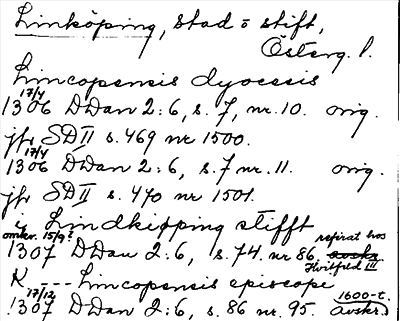 Linköping, stad o stift,
Österg. l.
Lincopensis dyocesis
17/4
1306 DDan 2:6, s. 7, nr. 10. orig.
jfr SD II s. 469 nr 1500.
17/4
1306 DDan 2:6, s. 7 nr. 11. orig.
jfr SD II s. 470 nr 1501.
i Lindkiøping stifft
omkr. 15/9? refirat hos
1307 DDan 2:6, s. 74. nr 86. avskr.
Hvitfeld III
K - - - - Lincopensis episcope
17/12 1600-t.
1307 DDan 2:6, s. 86 nr. 95. avskr.